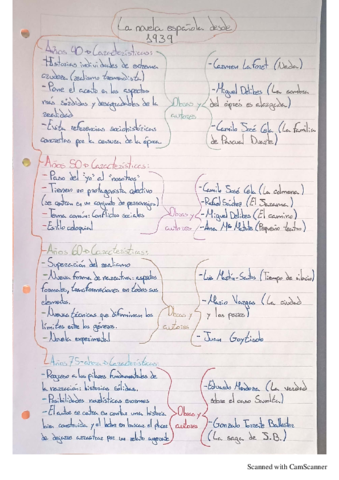 La novela española desde
1939
Años 40 → Características:
- Historias individuales de extrema
crudeza (realismo tremendista)
- Pone el acento en los aspectos
más sórdidos y desagradables de la
realidad
- Evita referencias sociohistóricas
concretas por la censura de la época.
Obras y
autores
- Carmen Laforet (Nada)
- Miguel Delibes (La sombra
del ciprés es alargada)
- Camilo José Cela (La familia
de Pascual Duarte)
Años 50 → Características:
- Paso del "yo" al "nosotros"
- Tienen un protagonista colectivo
(se centran en un conjunto de personajes)
- Tema común: Conflictos sociales
- Estilo coloquial
Obras y
autores
- Camilo José Cela (La colmena)
- Rafael Sánchez (El Jarama)
- Miguel Delibes (El camino)
- Ana Mª Matute (Pequeño teatro)
Años 60 → Características:
- Superación del realismo
- Nueva forma de narrativa: aspectos
formales, transformaciones en todos sus
elementos.
- Nuevas técnicas que determinan los
límites entre los géneros.
- Novela experimental
Obras y
autores
- Luis Martín-Santos (Tiempo de silencio)
- Mario Vargas (La ciudad
y los perros)
- Juan Goytisolo
Años 75 → Características:
- Regreso a los pilares fundamentales de
la narración: historias sólidas.
- Posibilidades novelísticas enormes
- El autor se centra en contar una historia
bien construida y el lector en buscar el placer
de dejarse arrastrar por un relato
Obras y
autores
- Eduardo Mendoza (La verdad
sobre el caso Savolta)
- Gonzalo Torrente Ballester
(La saga de J.B.)
Scanned with CamScanner